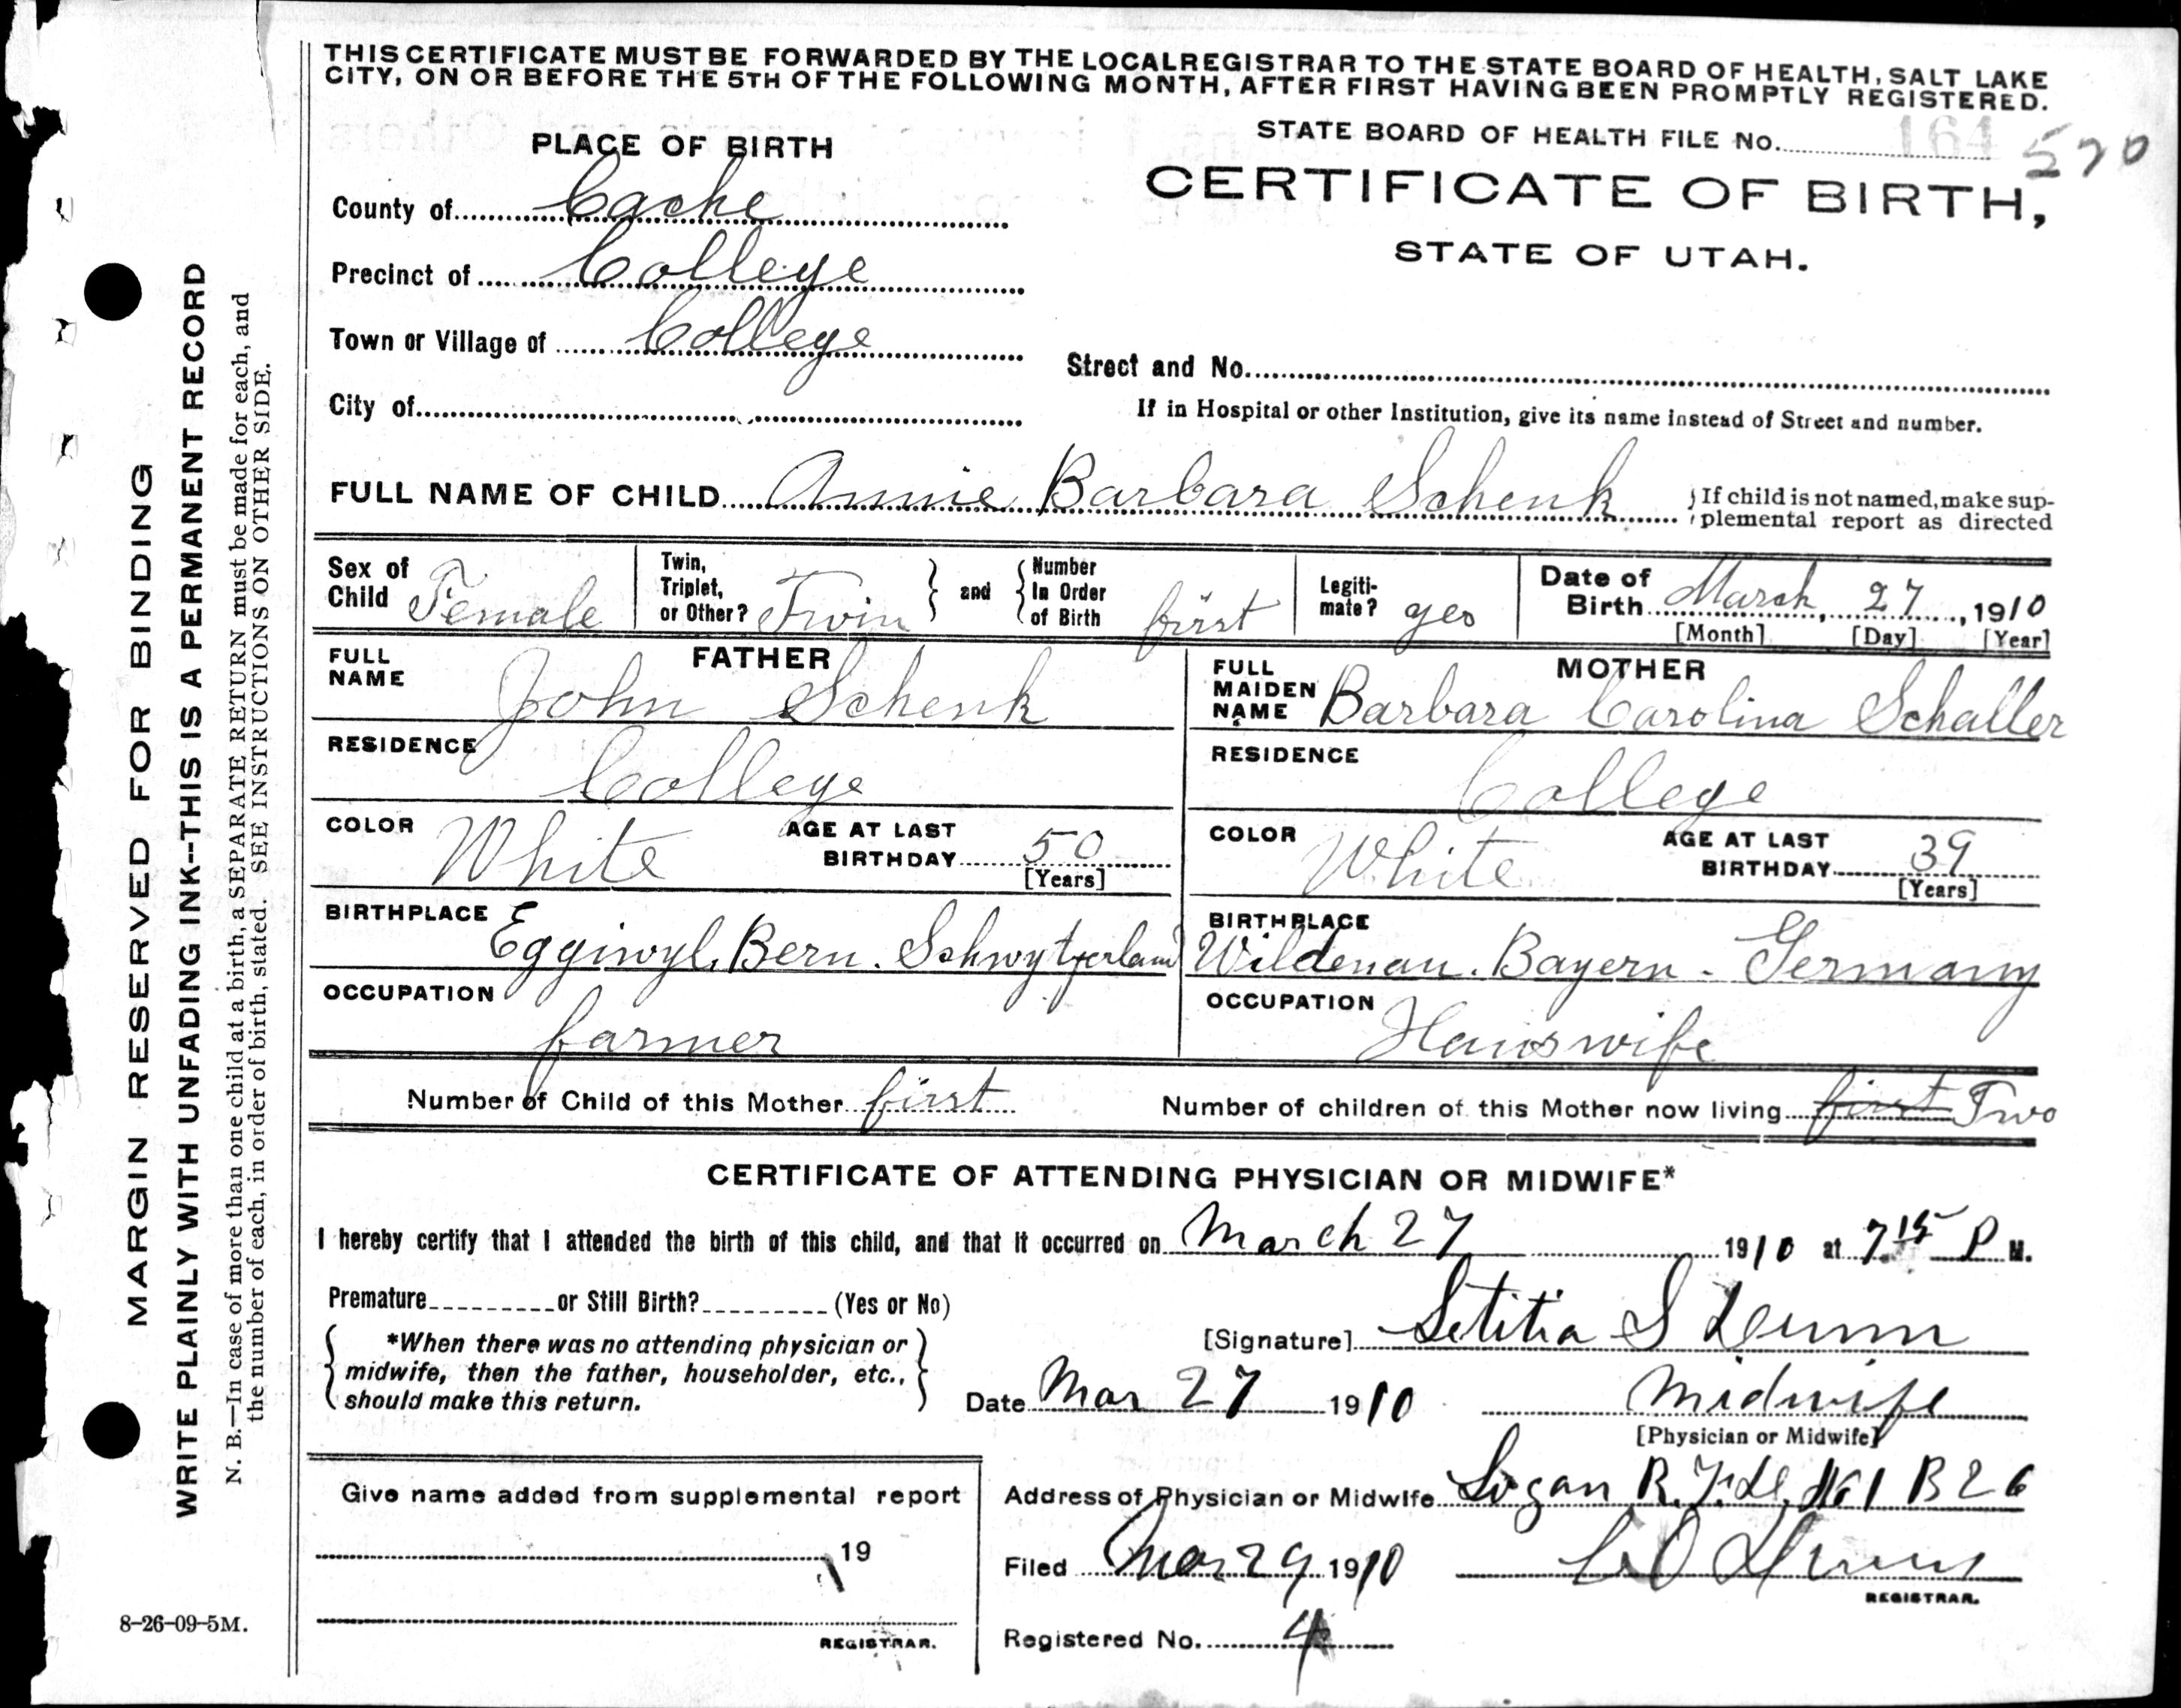 THIS CERTIFICATE MUST BE FORWARDED BY THE LOCAL REGISTRAR TO THE STATE BOARD OF HEALTH, SALT LAKE
CITY, ON OR BEFORE THE 5TH OF THE FOLLOWING MONTH, AFTER FIRST HAVING BEEN PROMPTLY REGISTERED.
PLACE OF BIRTH
STATE BOARD OF HEALTH FILE No. 164 570
CERTIFICATE OF BIRTH,
STATE OF UTAH.
County of Cache
Precinct of College
Town or Village of College
Street and No.
City of
If in Hospital or other Institution, give its name instead of Street and number.
FULL NAME OF CHILD Annie Barbara Schenk
If child is not named, make sup-
plemental report as directed
Sex of Child Female
Twin, Triplet, or Other? Twin
and
Number In Order of Birth first
Legiti-mate? yes
Date of Birth March, 27, 1910
[Month] [Day] [Year]
FATHER
FULL NAME John Schenk
RESIDENCE College
COLOR White
AGE AT LAST BIRTHDAY 50
[Years]
BIRTHPLACE Eggiwyl, Bern. Schwytzerland
OCCUPATION farmer
MOTHER
FULL MAIDEN NAME Barbara Carolina Schaller
RESIDENCE College
COLOR White
AGE AT LAST BIRTHDAY 39
[Years]
BIRTHPLACE Wildenau. Bayern - Germany
OCCUPATION Hauswife
Number of Child of this Mother first
Number of children of this Mother now living first Two
CERTIFICATE OF ATTENDING PHYSICIAN OR MIDWIFE*
I hereby certify that I attended the birth of this child, and that it occurred on March 27 1910 at 7.15 P M.
Premature or Still Birth? (Yes or No)
*When there was no attending physician or
midwife, then the father, householder, etc.,
should make this return.
[Signature] Letitia S Dunn
Date Mar 27 1910
Midwife
[Physician or Midwife]
Give name added from supplemental report
19
REGISTRAR.
Address of Physician or Midwife Logan R.F.D. No 1 B 26
Filed Mar 29 1910
REGISTRAR.
Registered No. 4
8-26-09-5M.
MARGIN RESERVED FOR BINDING
WRITE PLAINLY WITH UNFADING INK--THIS IS A PERMANENT RECORD
N. B.—In case of more than one child at a birth, a SEPARATE RETURN must be made for each, and
the number of each, in order of birth, stated. SEE INSTRUCTIONS ON OTHER SIDE.